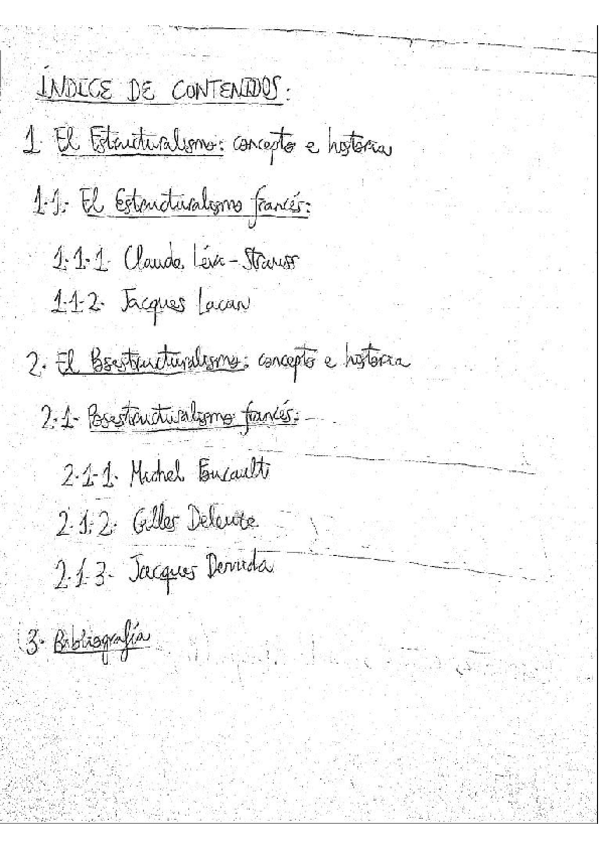 ÍNDICE DE CONTENIDOS:
1. El Estructuralismo: concepto e historia
1.1. El Estructuralismo francés:
1.1.1. Claude Lévi-Strauss
1.1.2. Jacques Lacan
2. El Posestructuralismo: concepto e historia
2.1. Posestructuralismo francés:
2.1.1. Michel Foucault
2.1.2. Gilles Deleuze
2.1.3. Jacques Derrida
3. Bibliografía